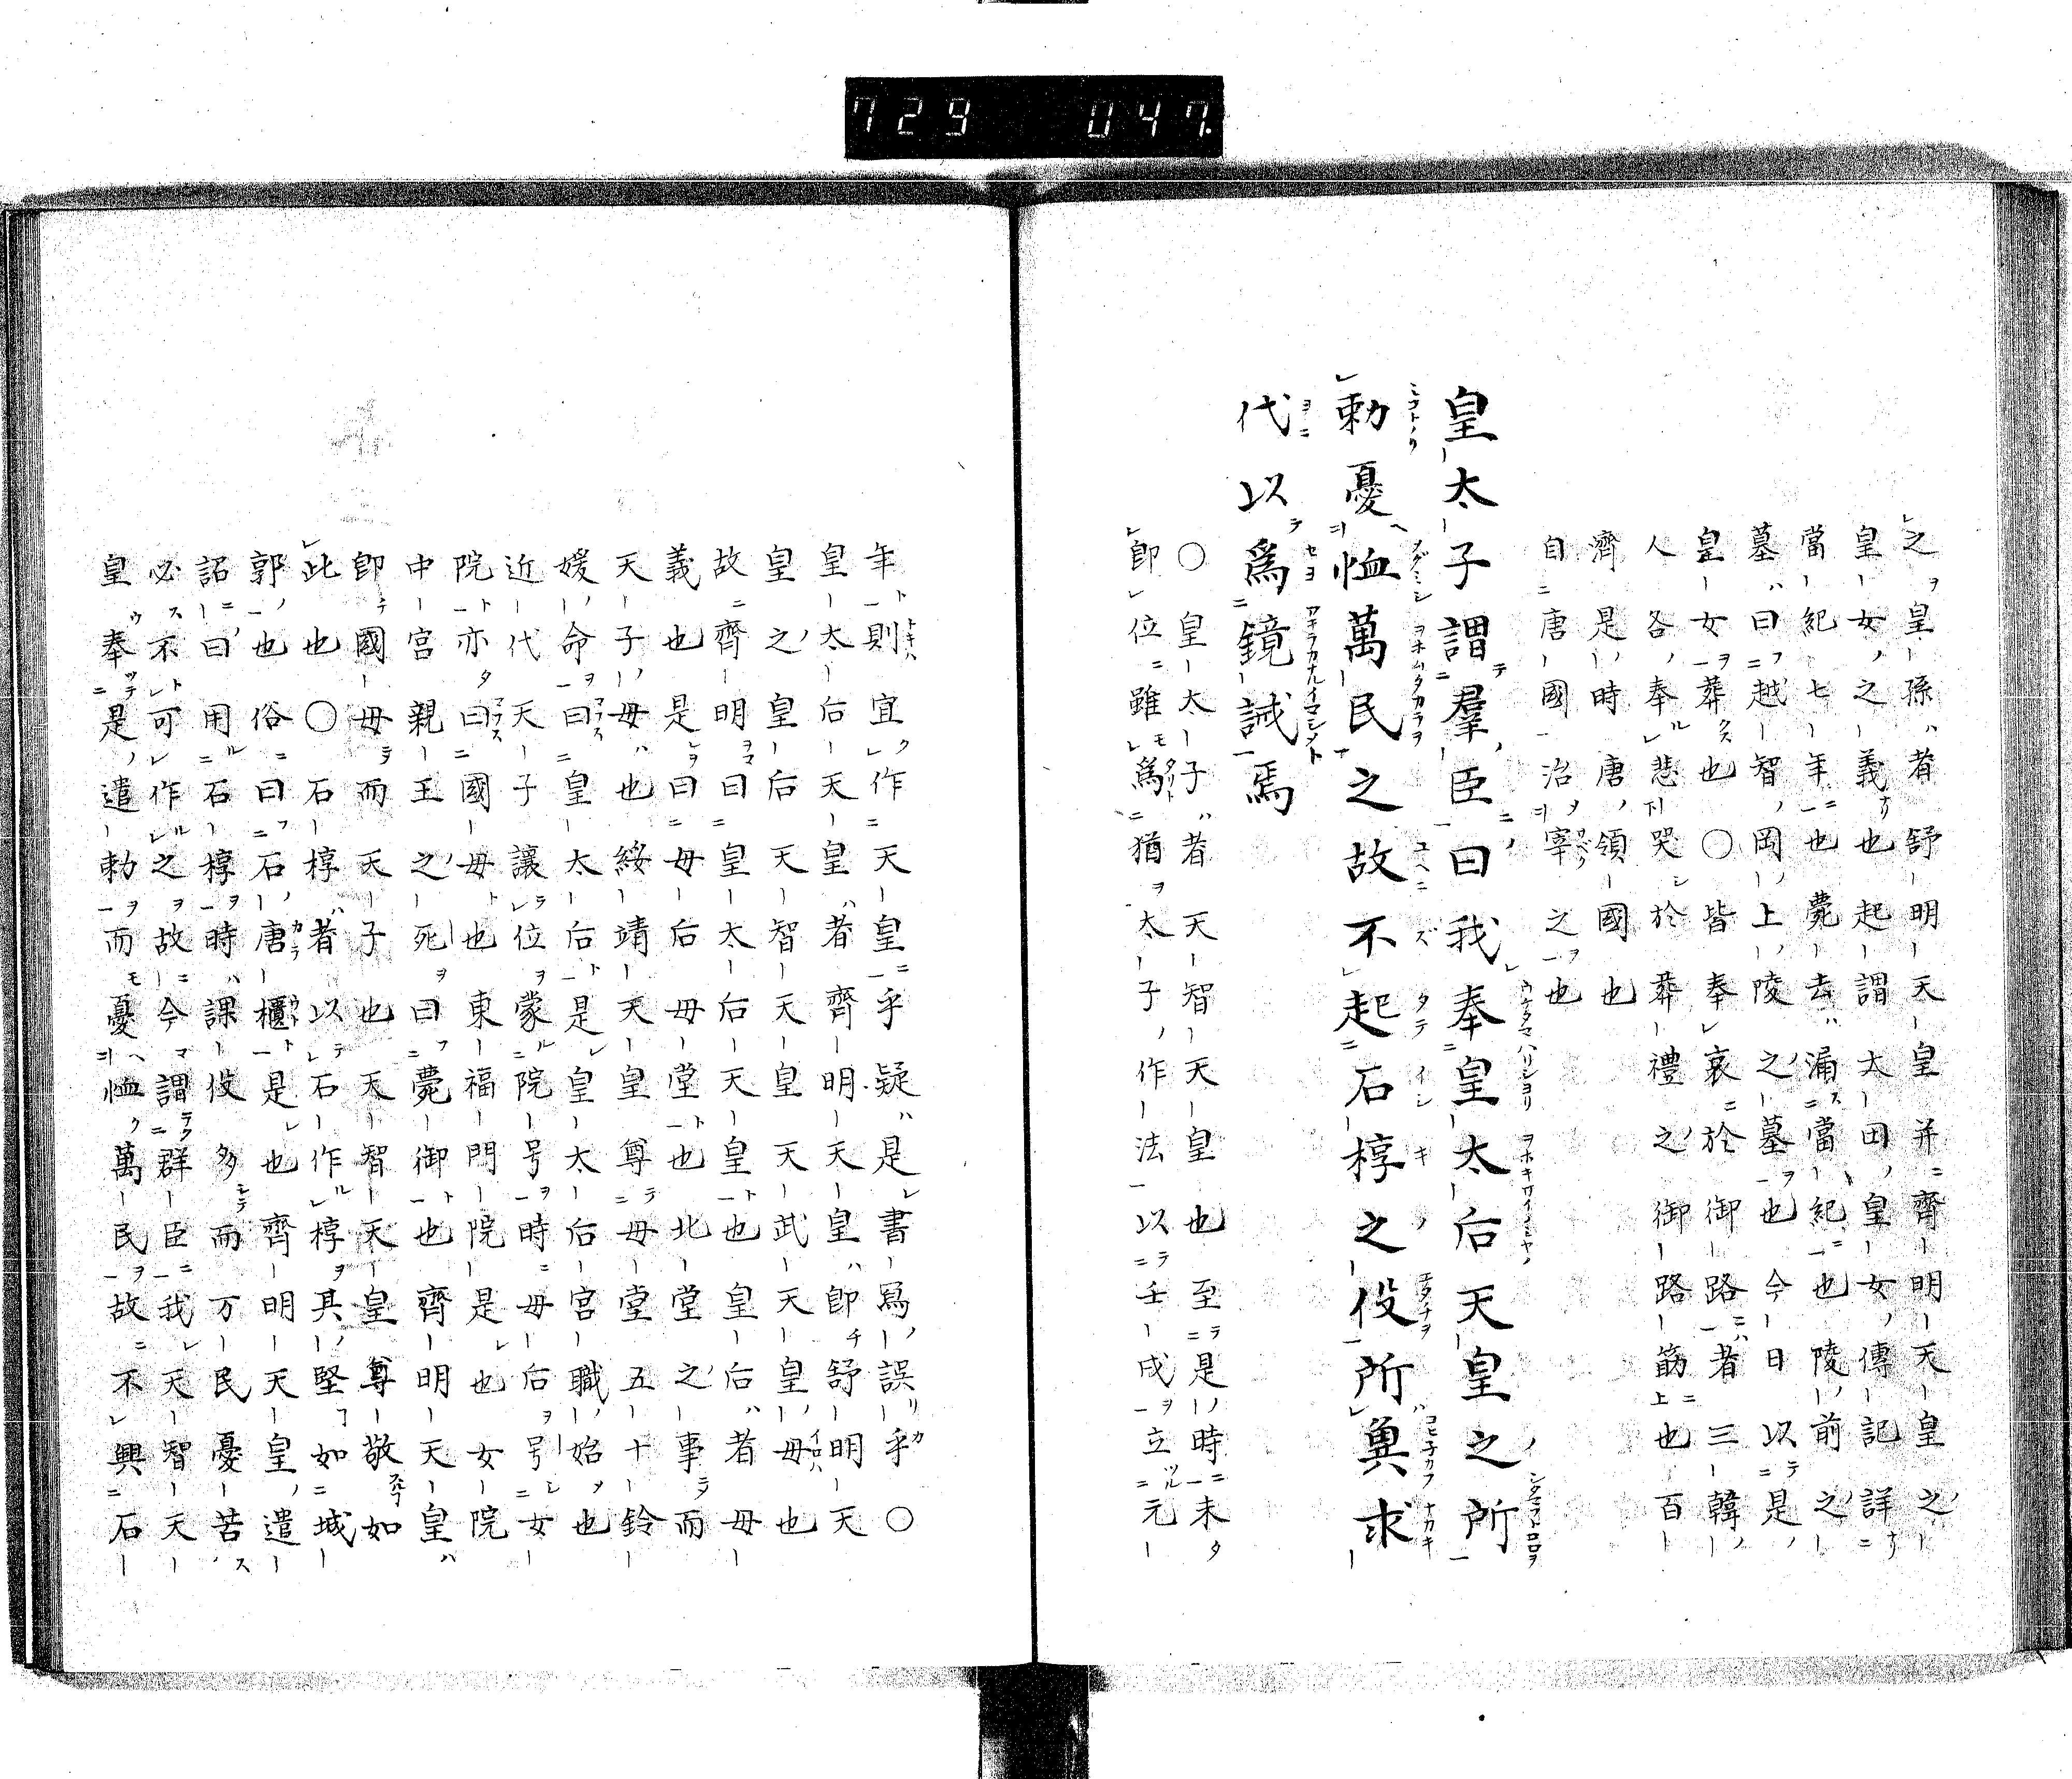 729 047.
之皇孫者舒明天皇并齊明天皇之
皇女之義也起謂太田皇女傳記詳
當紀七年也薨去漏當紀也陵前之
墓曰越智岡上陵之墓也今日以是
皇女葬也〇皆奉哀於御路者三韓
人各奉悲哭於葬禮之御路筋也百
濟是時唐領國也
自唐國治宰之也
皇太子謂羣臣曰我奉皇太后天皇之所
勅憂恤萬民之故不起石椁之役所兾求
代以爲鏡誡焉
〇皇太子者天智天皇也至是時未
即位雖爲猶太子作法以壬戌立元
年則宜作天皇乎疑是書爲誤乎〇
皇太后天皇者齊明天皇即舒明天
皇之皇后天智天皇天武天皇母也
故齊明曰皇太后天皇也皇后者母
義也是曰母后母堂也北堂之事而
天子母也綏靖天皇尊母堂五十鈴
媛命曰皇太后是皇太后宮職始也
近代天子讓位蒙院号時母后号女
院亦曰國母也東福門院是也女院
中宮親王之死曰薨御也齊明天皇
即國母而天子也天智天皇尊敬如
此也〇石椁者以石作椁其堅如城
郭也俗曰石唐櫃是也齊明天皇遣
詔曰用石椁時課役多而万民憂苦
必不可作之故今謂群臣我天智天
皇奉是遣勅而憂恤萬民故不興石